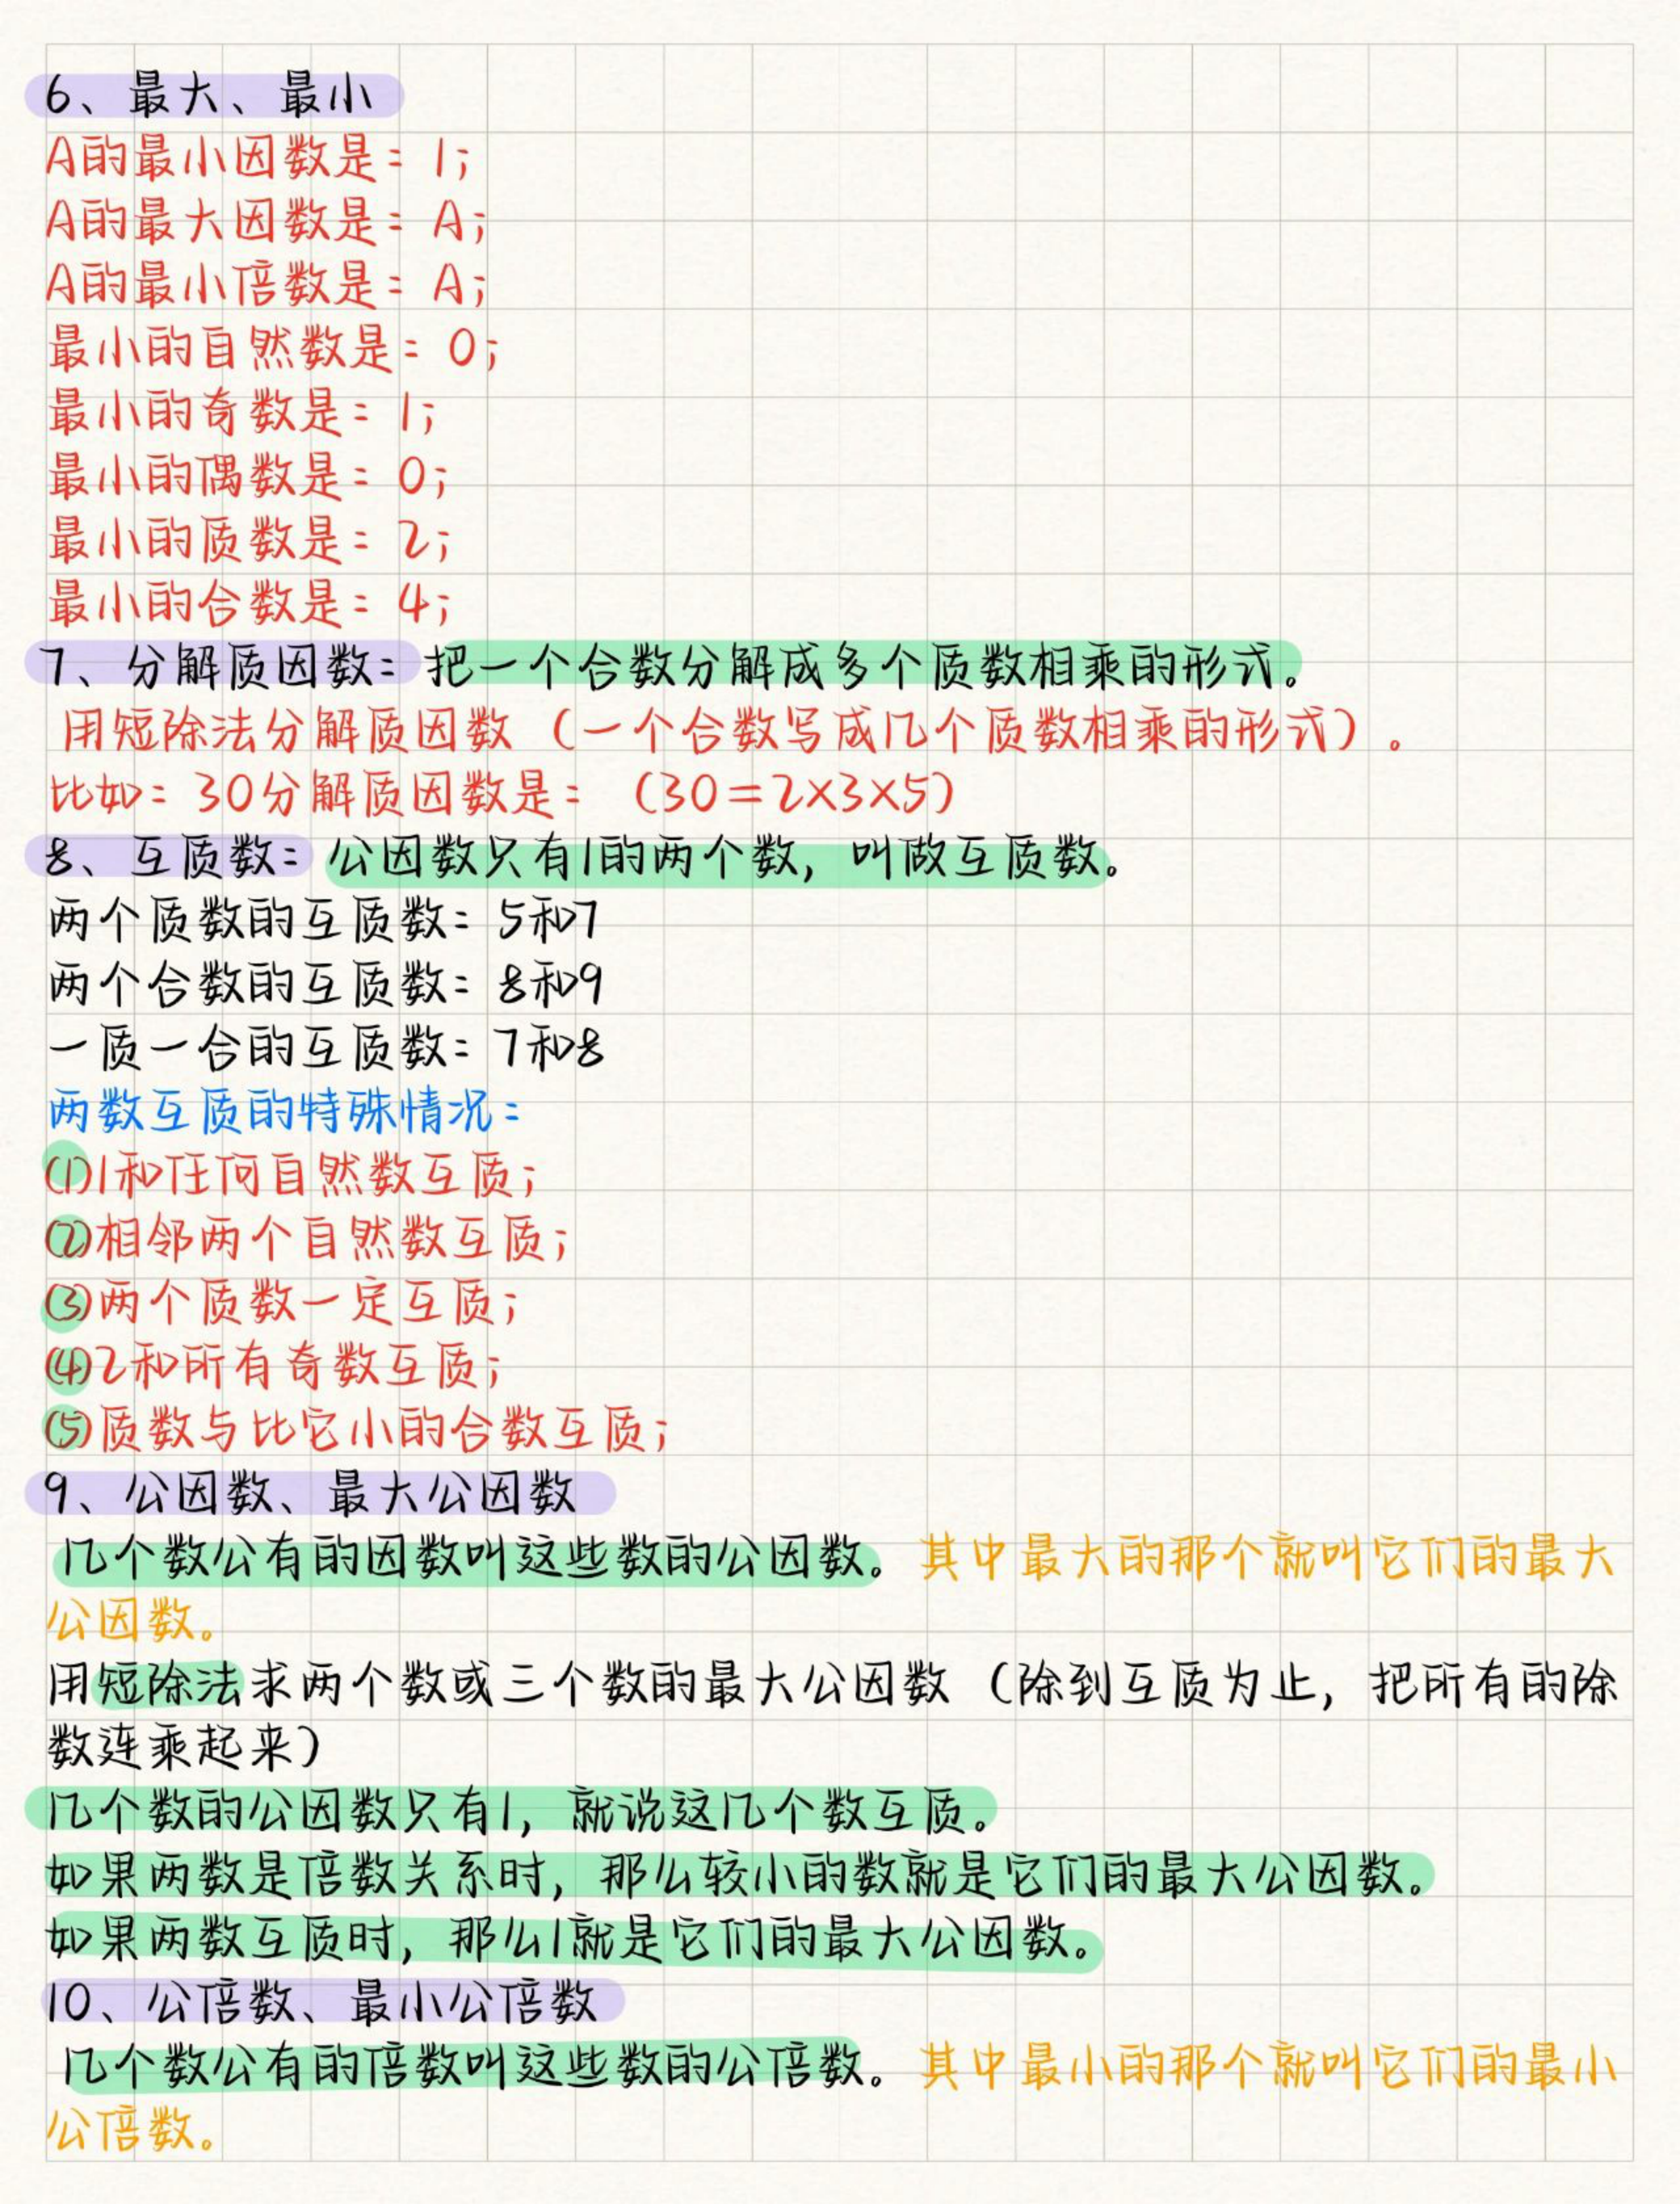 6、最大、最小
A的最小因数是：1；
A的最大因数是：A；
A的最小倍数是：A；
最小的自然数是：0；
最小的奇数是：1；
最小的偶数是：0；
最小的质数是：2；
最小的合数是：4；
7、分解质因数：把一个合数分解成多个质数相乘的形式。
用短除法分解质因数（一个合数写成几个质数相乘的形式）。
比如：30分解质因数是：（30=2×3×5）
8、互质数：公因数只有1的两个数，叫做互质数。
两个质数的互质数：5和7
两个合数的互质数：8和9
一质一合的互质数：7和8
两数互质的特殊情况：
⑴1和任何自然数互质；
⑵相邻两个自然数互质；
⑶两个质数一定互质；
⑷2和所有奇数互质；
⑸质数与比它小的合数互质；
9、公因数、最大公因数
几个数公有的因数叫这些数的公因数。其中最大的那个就叫它们的最大
公因数。
用短除法求两个数或三个数的最大公因数（除到互质为止，把所有的除
数连乘起来）
几个数的公因数只有1，就说这几个数互质。
如果两数是倍数关系时，那么较小的数就是它们的最大公因数。
如果两数互质时，那么1就是它们的最大公因数。
10、公倍数、最小公倍数
几个数公有的倍数叫这些数的公倍数。其中最小的那个就叫它们的最小
公倍数。